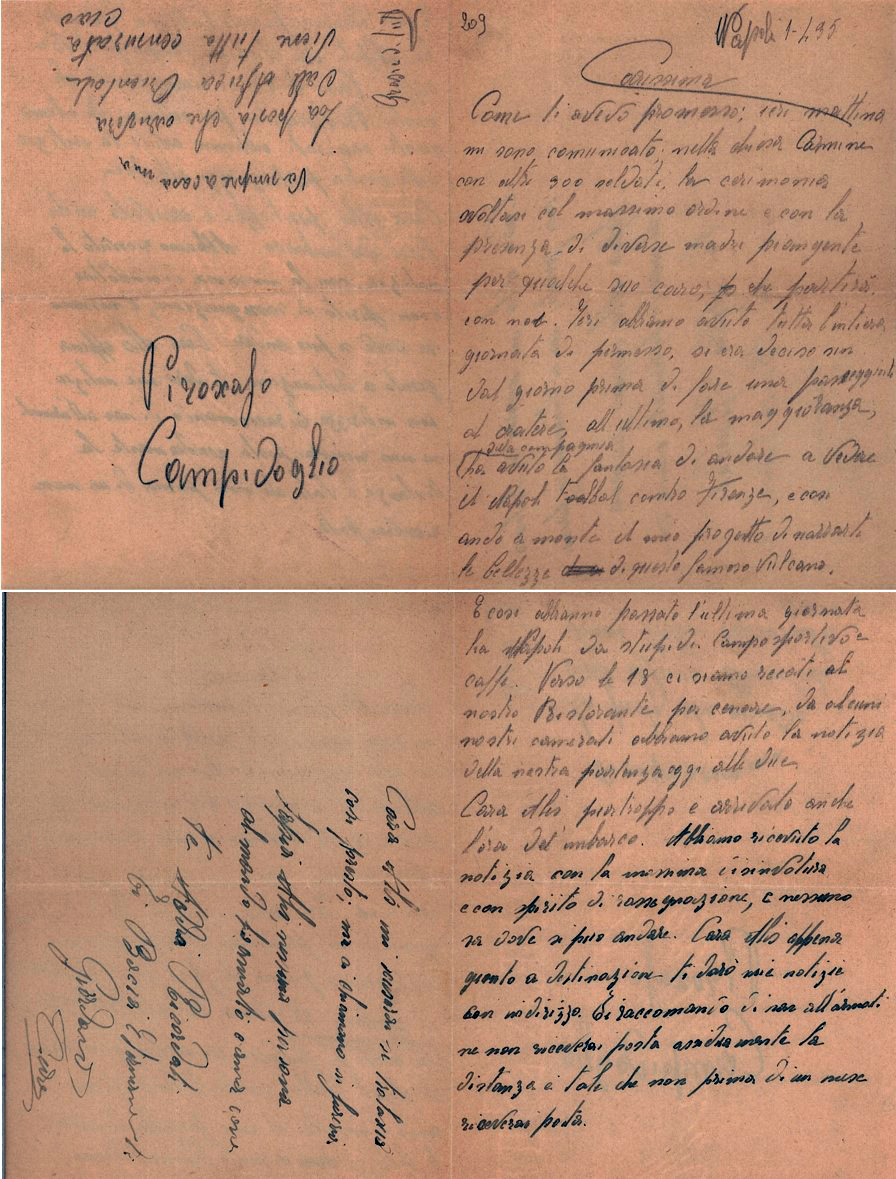 209
Napoli 1-4.35
Carissima
Come ti avevo promesso; ieri mattina
mi sono comunicato, nella chiesa Carmine
con altri 300 soldati, la cerimonia
svoltasi col massimo ordine e con la
presenza di diverse madri piangente
per qualche suo caro, che partirà
con noi. Ieri abbiamo avuto tutta l'intiera
giornata di permesso, si era deciso sin
dal giorno prima di fare una passeggiata
al cratere, all'ultimo, la maggioranza,
della compagnia
ha avuto la fantasia di andare a vedere
il Napoli Footbal contro Firenze, e così
andò a monte il mio progetto di narrarti
le bellezze di questo famoso Vulcano.
E così abbiamo passato l'ultima giornata
ha Napoli da stupidi. Campo sportivo e
caffe. Verso le 18 ci siamo recati al
nostro Ristorante per cenare, da alcuni
nostri camerati abbiamo avuto la notizia
della nostra partenza oggi alle due
Cara Alis purtroppo è arrivata anche
l'ora del'imbarco. Abbiamo ricevuto la
notizia con la massima disinvoltura
e con spirito di rassegnazione, e nessuno
sa dove si può andare. Cara Alis appena
giunto a destinazione ti darò mie notizie
con indirizzo. Ti raccomando di non allarmati
se non riceverai posta assiduamente la
distanza è tale che non prima di un mese
riceverai posta.
Cara Alis mi scuserai se ti lascio
così presto, ma ci chiamano in furia.
Alis, nessuna persona
al mondo
te Addio Ricordati
ti Bacia Eternamente
Giordano
Ciao
Va sempre a casa mia
La posta che arriverà
dall'Africa Orientale
viene tutta censurata
Ciao
Pirosafo
Campidoglio